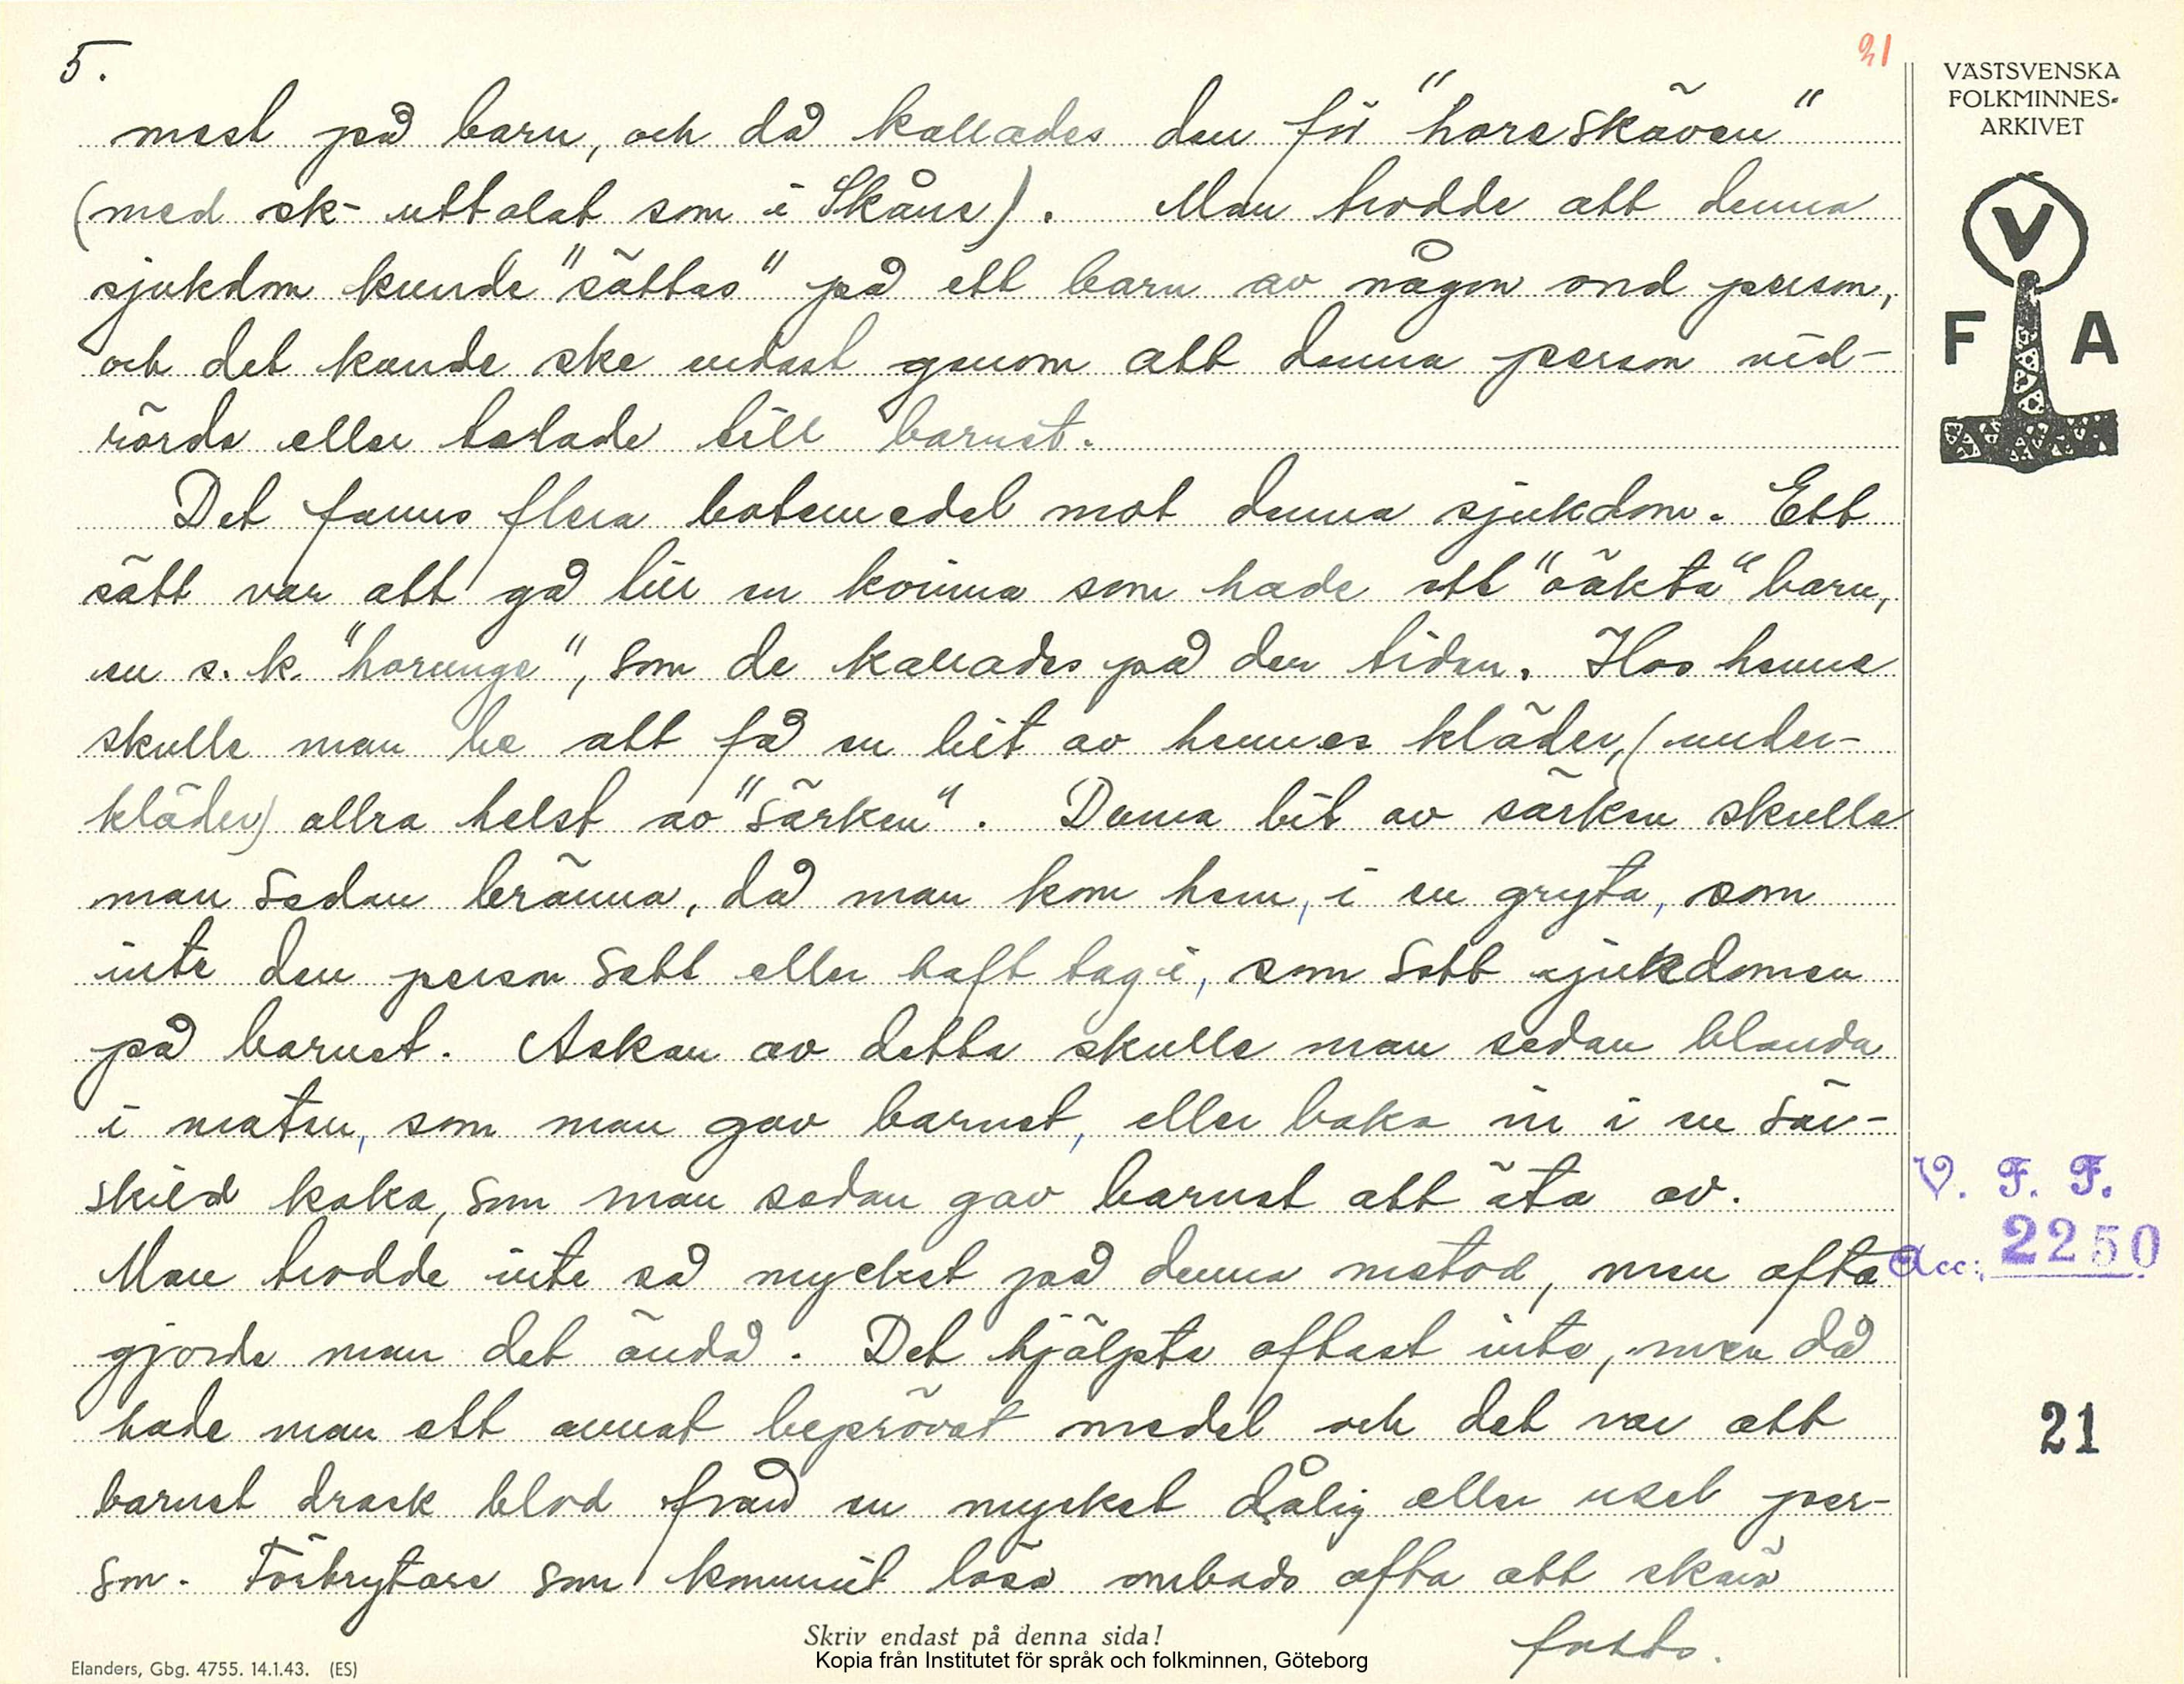 5.
21
VÄSTSVENSKA
FOLKMINNES-
ARKIVET
V
F A
mest på barn, och då kallades den för "horeskäven"
(med sk- uttalat som i Skåne). Man trodde att denna
sjukdom kunde "sättas" på ett barn av någon ond person,
och det kunde ske endast genom att denna person vid-
rörde eller talade till barnet.
Det fanns flera botemedel mot denna sjukdom. Ett
sätt var att gå till en kvinna som hade ett "oäkta" barn,
en s.k. "horunge", som de kallades på den tiden. Hos henne
skulle man be att få en bit av hennes kläder, (under-
kläder) allra helst av "särken". Denna bit av särken skulle
man sedan bränna, då man kom hem, i en gryta, som
inte den person sett eller haft tag i, som satt sjukdomen
på barnet. Askan av detta skulle man sedan blanda
i maten, som man gav barnet, eller baka in i en sär-
skild kaka, som man sedan gav barnet att äta av.
Man trodde inte så mycket på denna metod, men ofta
gjorde man det ändå. Det hjälpte oftast inte, men då
hade man ett annat beprövat medel och det var att
barnet drack blod från en mycket dålig eller usel per-
son. Förbrytare som kommit lösa ombads ofta att skära
forts.
V. F. F.
Acc: 2250
21
Skriv endast på denna sida!
Kopia från Institutet för språk och folkminnen, Göteborg
Elanders, Gbg. 4755. 14.1.43. (ES)